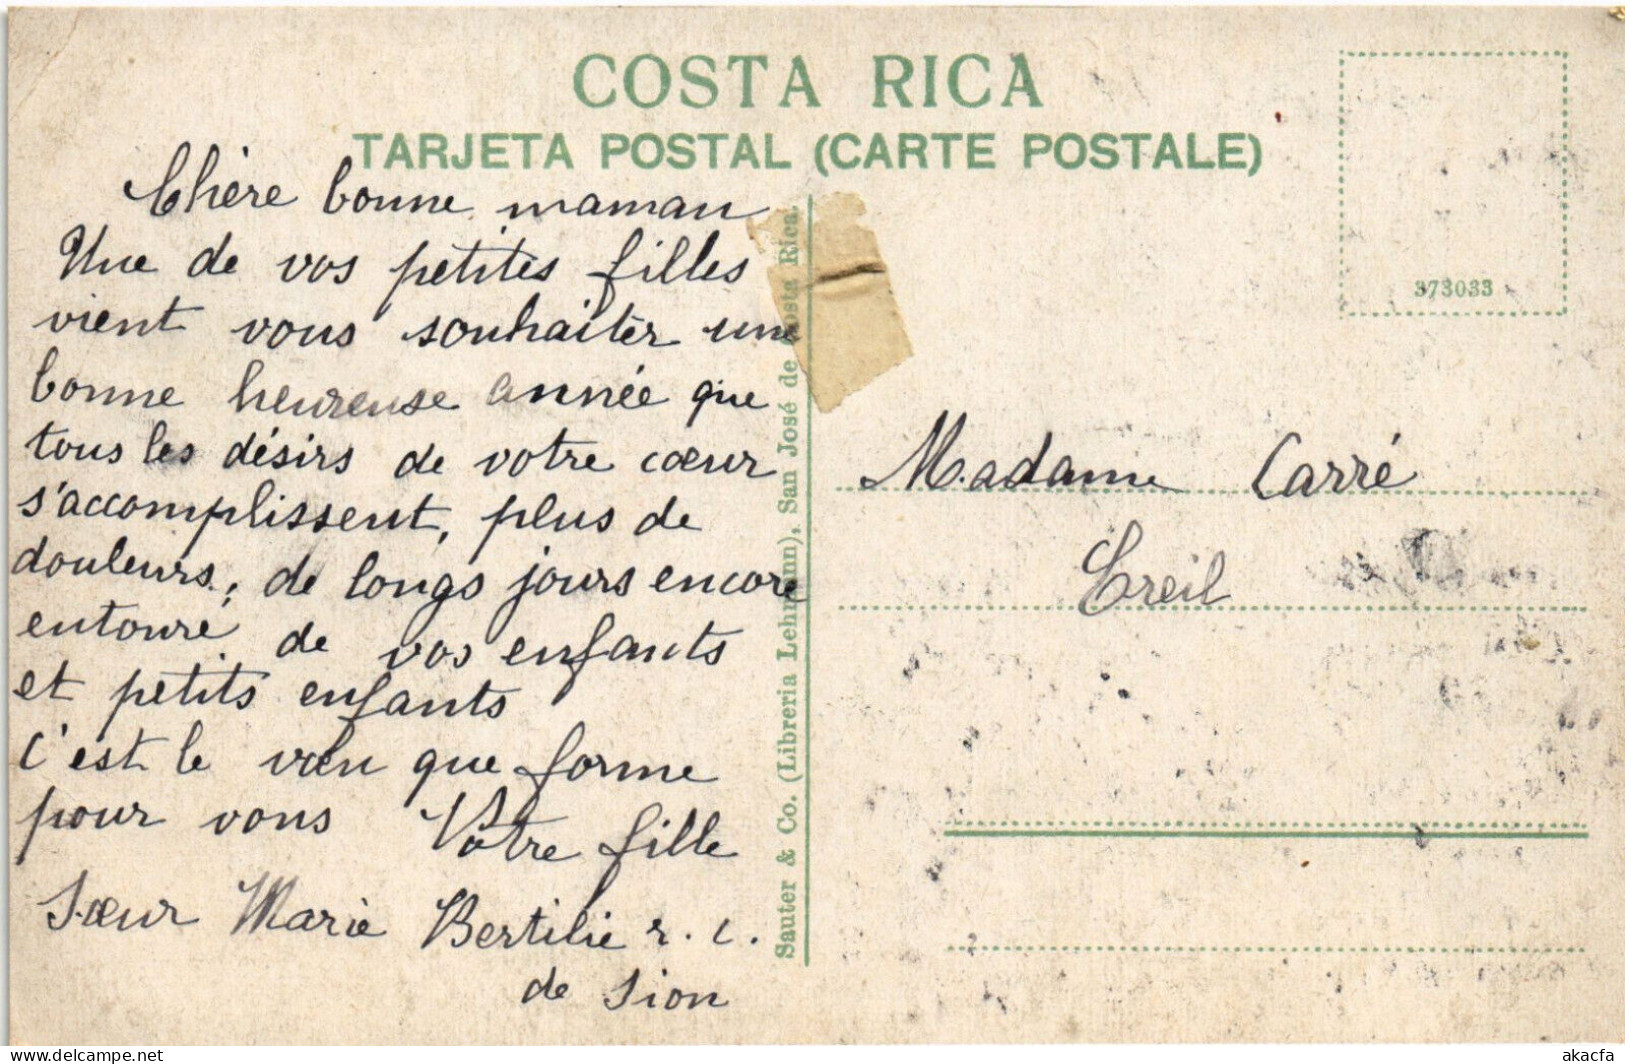 COSTA RICA
TARJETA POSTAL (CARTE POSTALE)
373033
Chère bonne maman
Une de vos petites filles
vient vous souhaiter une
bonne heureuse année que
tous les désirs de votre cœur
s'accomplissent, plus de
douleurs, de longs jours encore
entouré de vos enfants
et petits enfants
C'est le vœu que forme
pour vous Votre fille
Sœur Marie Bertilie r. c.
de Sion
Sauter & Co. (Libreria Lehmann), San José de Costa Rica.
Madame Carré
Creil
www.delcampe.net
akacfa